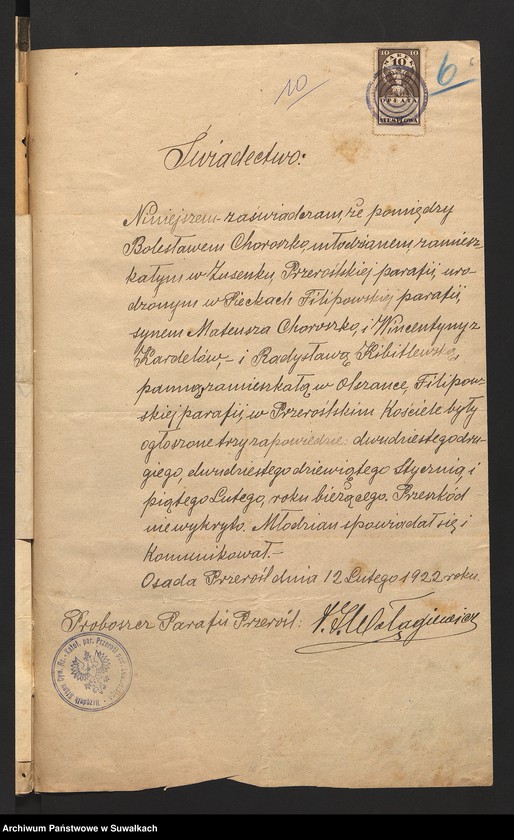 10
6
10
OPŁATA
STEMPLOWA
Świadectwo:
Niniejszem zaświadczam, że pomiędzy
Bolesławem Choroszko, młodzianem, zamiesz-
kałym w Zusenku, Przeroślskiej parafii, uro-
dzonym w Pieckach Filipowskiej parafii,
synem Mateusza Choroszko, i Wincentyny z
Kardelów, - i Radysławą Kibitlewską,
panną, zamieszkałą w Olszance, Filipow-
skiej parafii, w Przeroślskim Kościele były
ogłoszone trzy zapowiedzie: dwudziestego dru-
giego, dwudziestego dziewiątego Stycznia, i
piątego Lutego, roku bieżącego. Przeszkód
nie wykryto. Młodzian spowiadał się i
Komunikował. -
Osada Przerośl dnia 12 Lutego 1922 roku.
Proboszcz Parafii Przerośl:
Archiwum Państwowe w Suwałkach